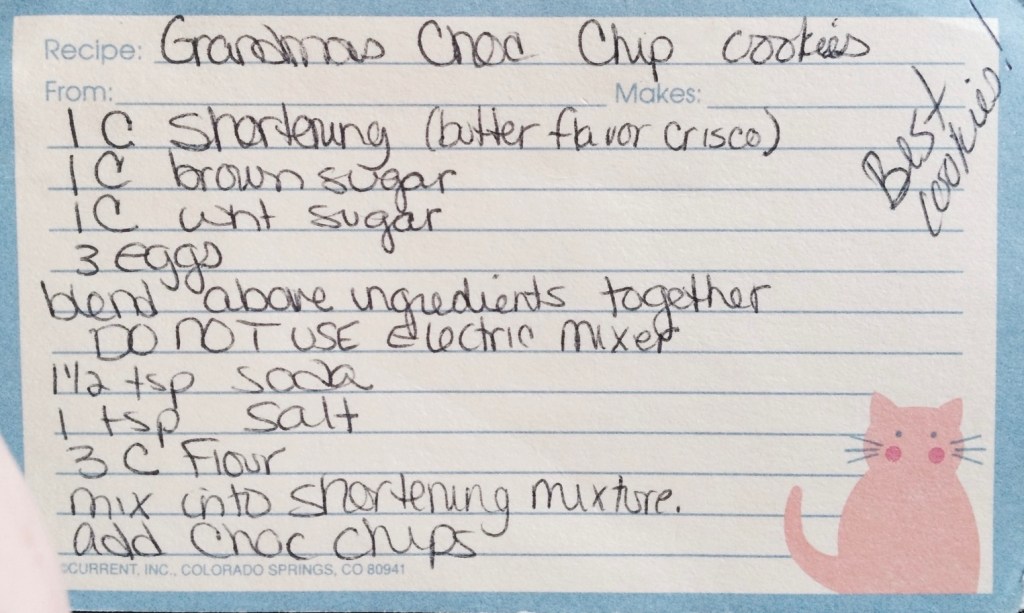 Recipe: Grandmas Choc Chip cookies
From: Makes:
Best cookies!
1 C shortening (butter flavor crisco)
1 C brown sugar
1 C wht sugar
3 eggs
blend above ingredients together
DO NOT USE electric mixer
1 1/2 tsp soda
1 tsp salt
3 C Flour
mix into shortening mixture.
add choc chips
©CURRENT, INC., COLORADO SPRINGS, CO 80941